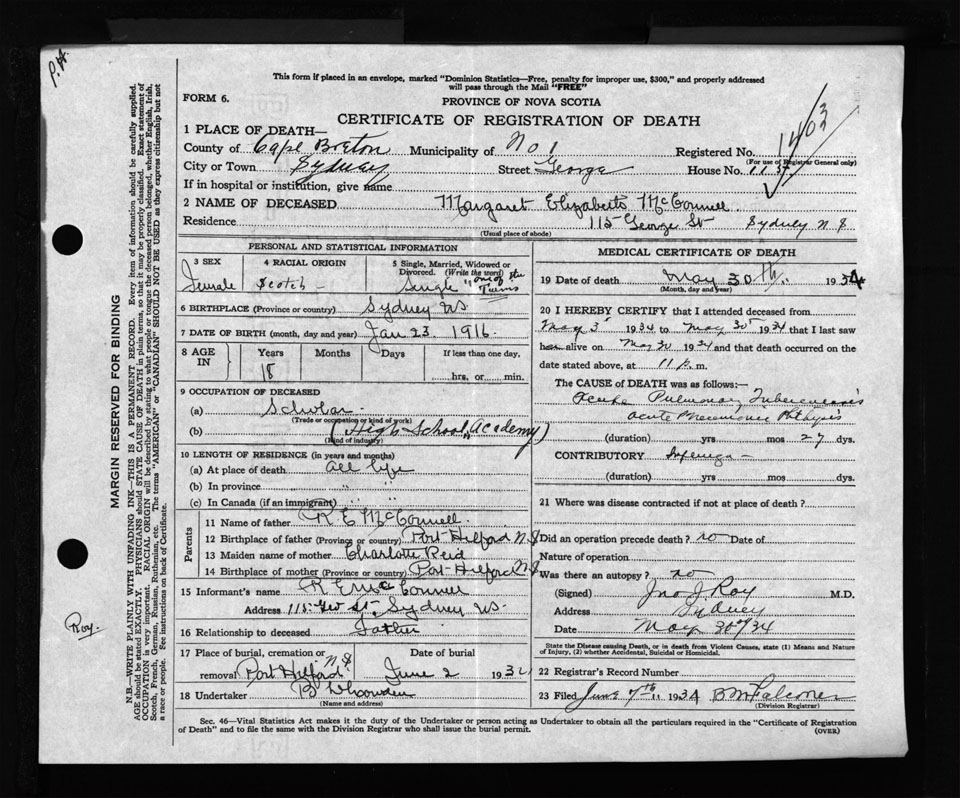 P.H.
This form if placed in an envelope, marked "Dominion Statistics—Free, penalty for improper use, $300," and properly addressed
will pass through the Mail "FREE"
FORM 6.
PROVINCE OF NOVA SCOTIA
CERTIFICATE OF REGISTRATION OF DEATH
1403
1 PLACE OF DEATH—
County of Cape Breton Municipality of No 1 Registered No.
(For use of Registrar General only)
City or Town Sydney Street George House No. 115
If in hospital or institution, give name
2 NAME OF DECEASED Margaret Elizabeth McConnell
Residence 115 George St Sydney N S
(Usual place of abode)
PERSONAL AND STATISTICAL INFORMATION
3 SEX 4 RACIAL ORIGIN 5 Single, Married, Widowed or Divorced. (Write the word)
Female Scotch - Single "one of the Twins
6 BIRTHPLACE (Province or country) Sydney NS
7 DATE OF BIRTH (month, day and year) Jan 23, 1916.
8 AGE IN Years Months Days If less than one day,
18 hrs. or min.
9 OCCUPATION OF DECEASED
(a) Scholar
(Trade or occupation or kind of work)
(b) (High School "Academy)
(Kind of industry)
10 LENGTH OF RESIDENCE (in years and months)
(a) At place of death all life
(b) In province " "
(c) In Canada (if an immigrant) " "
Parents
11 Name of father R E McConnell
12 Birthplace of father (Province or country) Port Hilford N S
13 Maiden name of mother Charlotte Reid
14 Birthplace of mother (Province or country) Port Hilford N S
15 Informant's name R E McConnell
Address 115 Geo St, Sydney NS
16 Relationship to deceased Father
17 Place of burial, cremation or removal Port Hilford N S Date of burial June 2 1934
18 Undertaker
(Name and address)
MEDICAL CERTIFICATE OF DEATH
19 Date of death May 30th. 1934
(Month, day and year)
20 I HEREBY CERTIFY that I attended deceased from
May 3 1934 to May 30 1934 that I last saw
her alive on May 30 1934 and that death occurred on the
date stated above, at 11 p. m.
The CAUSE OF DEATH was as follows:—
Acute Pulmonary Tuberculosis
acute Pneumonic Phthisis
(duration) yrs mos 27 dys.
CONTRIBUTORY
(duration) yrs mos dys.
21 Where was disease contracted if not at place of death?
Did an operation precede death? no Date of
Nature of operation
Was there an autopsy? no
(Signed) Jno J Roy M.D.
Address Sydney
Date May 30/34
State the Disease causing Death, or in death from Violent Causes, state (1) Means and Nature of Injury, (2) whether Accidental, Suicidal or Homicidal.
22 Registrar's Record Number
23 Filed June 7th 1934 B M Falconer
(Division Registrar)
Sec. 46—Vital Statistics Act makes it the duty of the Undertaker or person acting as Undertaker to obtain all the particulars required in the "Certificate of Registration
of Death" and to file the same with the Division Registrar who shall issue the burial permit. (OVER)
MARGIN RESERVED FOR BINDING
N.B.—WRITE PLAINLY WITH UNFADING INK—THIS IS A PERMANENT RECORD. Every item of information should be carefully supplied.
AGE should be stated EXACTLY. PHYSICIANS should STATE CAUSE OF DEATH in plain terms, so that it may be properly classified. Exact statement of
OCCUPATION is very important. RACIAL ORIGIN will be described by stating to what people or tongue the deceased person belonged, whether English, Irish,
Scotch, French, German, Russian, Ruthenian, etc. The terms "AMERICAN" or "CANADIAN" SHOULD NOT BE USED as they express citizenship but not
a race or people. See instructions on back of Certificate.
Roy.